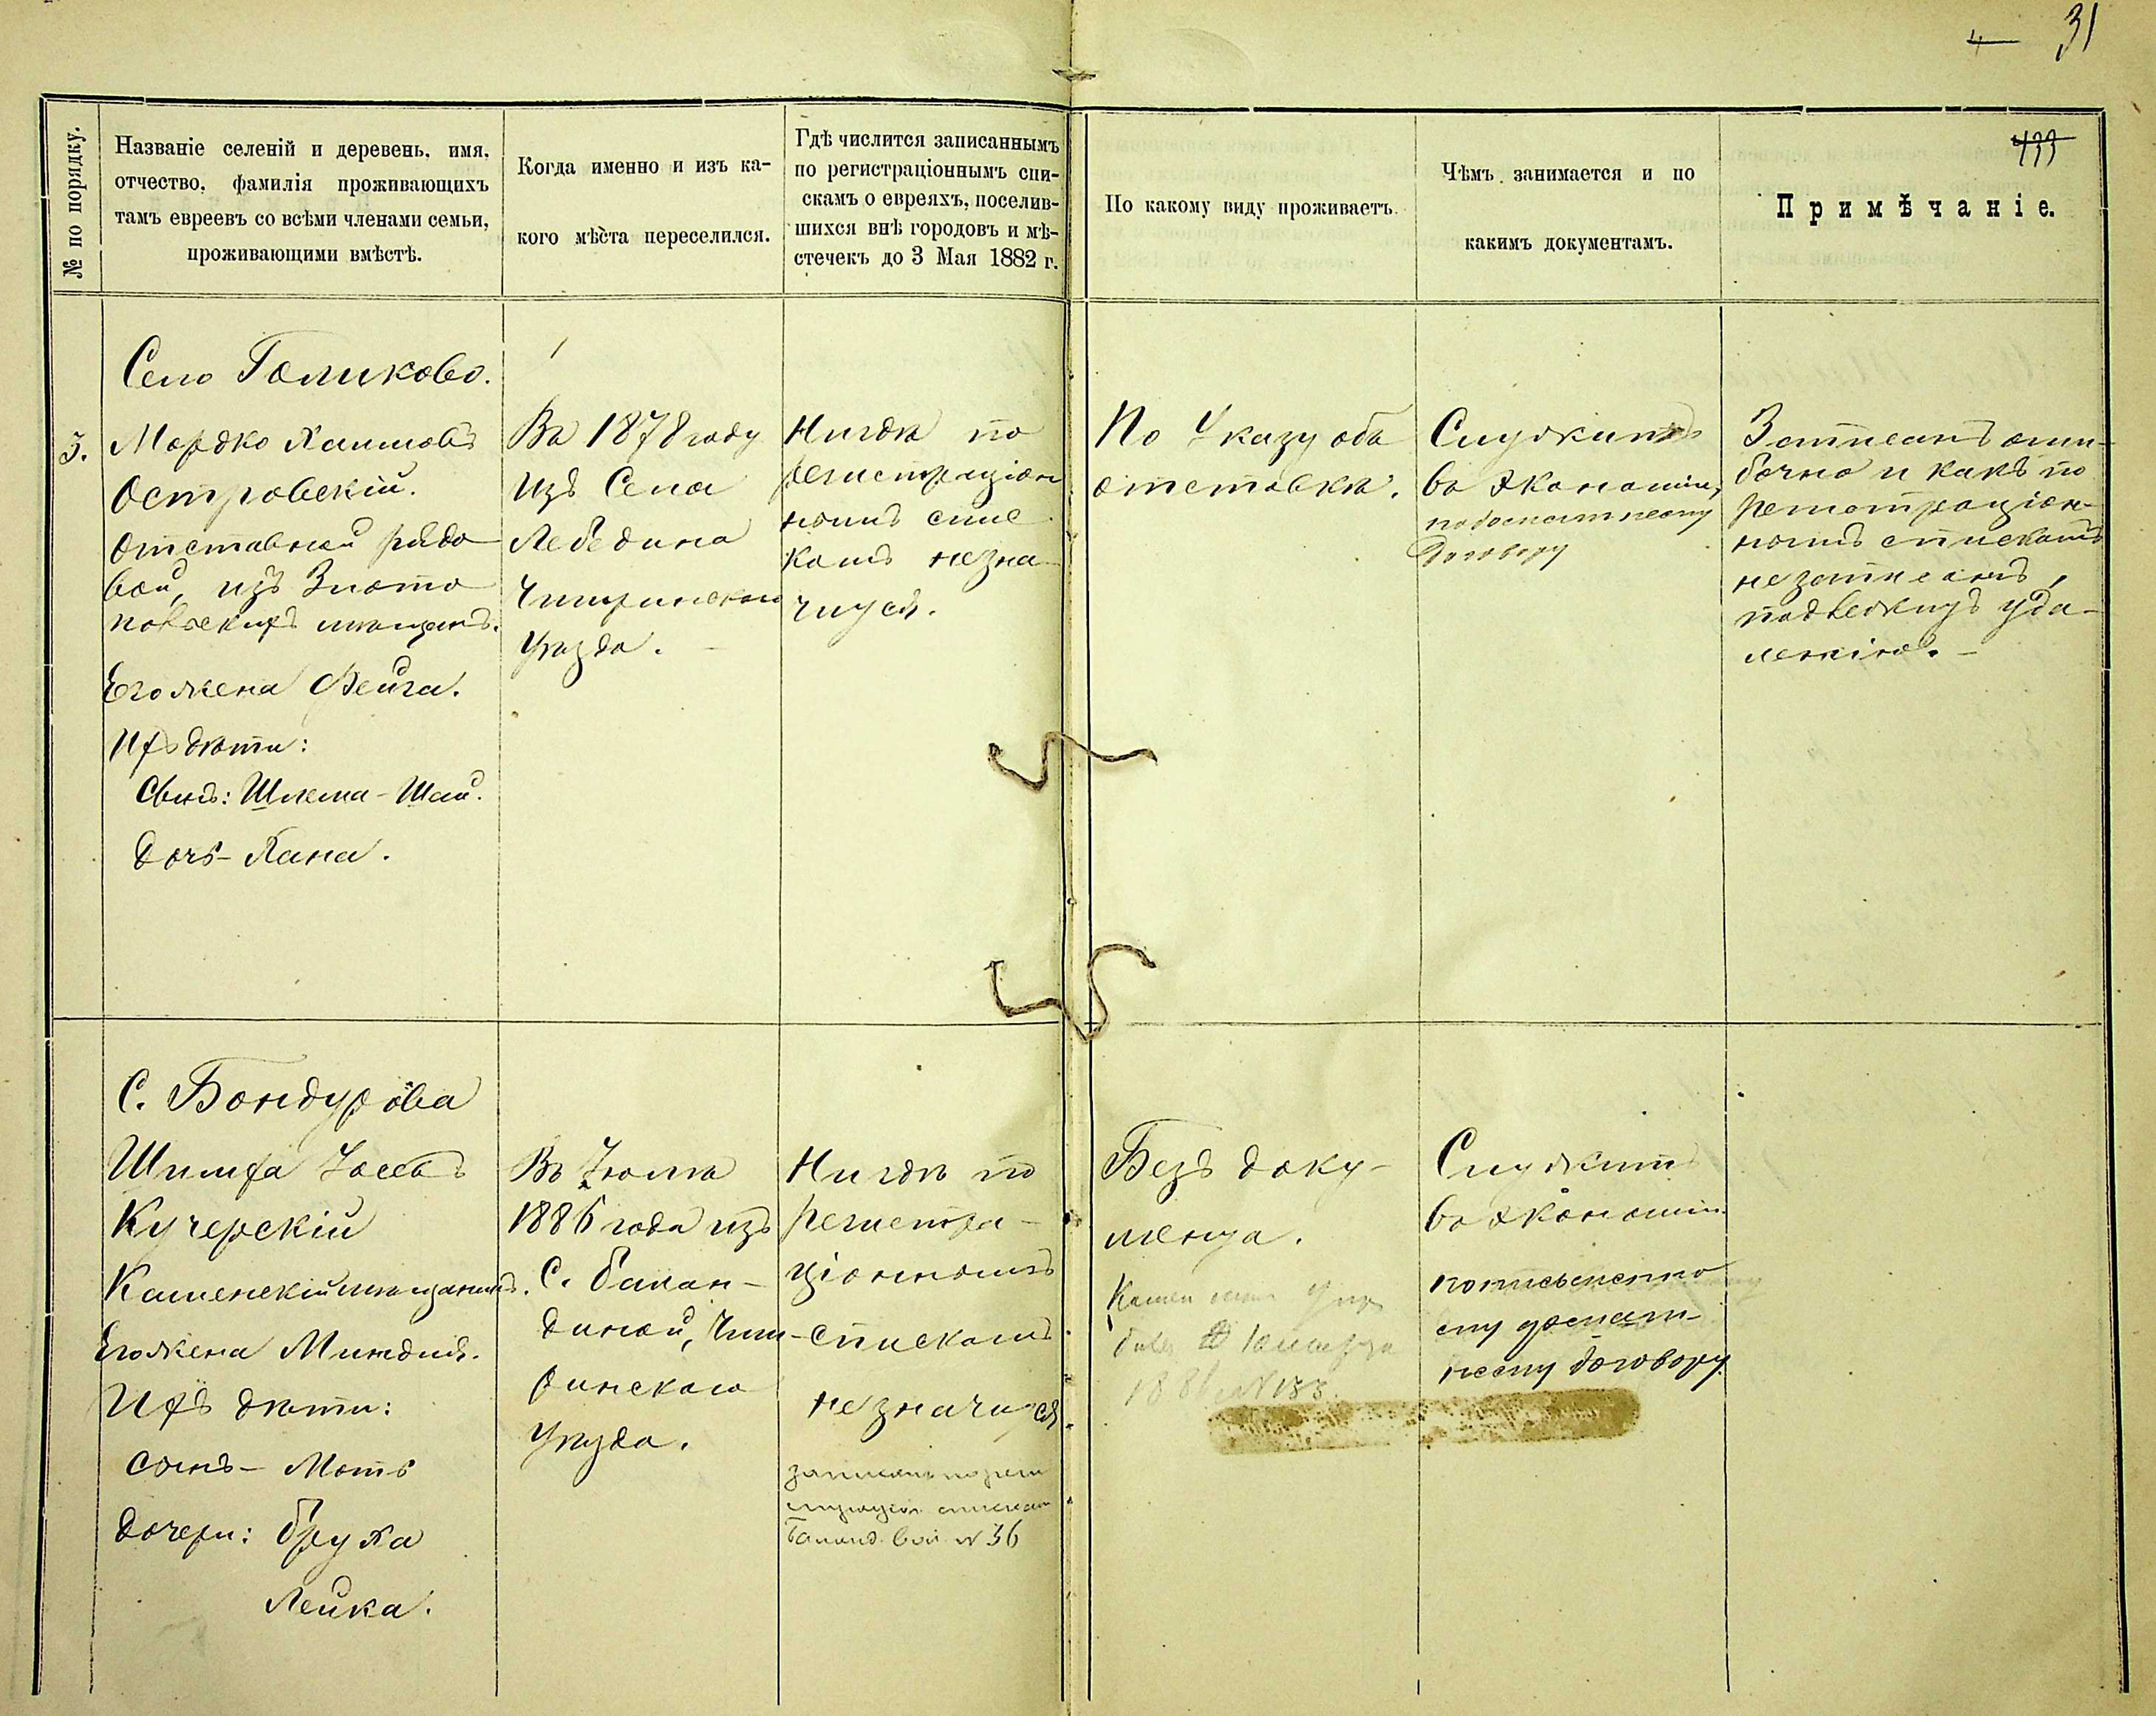 31
№ по порядку.
Названіе селеній и деревень, имя,
отчество, фамилія проживающихъ
тамъ евреевъ со всѣми членами семьи,
проживающими вмѣстѣ.
Когда именно и изъ ка-
кого мѣста переселился.
Гдѣ числится записаннымъ
по регистраціоннымъ спи-
скамъ о евреяхъ, поселив-
шихся внѣ городовъ и мѣ-
стечекъ до 3 Мая 1882 г.
По какому виду проживаетъ.
Чѣмъ занимается и по
какимъ документамъ.
Примѣчаніе.
Село Голиково.
3.
Мордко Хаимовъ
Островскій.
Отставной рядо
вой, изъ Злато
польскихъ мѣщанъ.
Его жена Фейга.
Ихъ дѣти:
Сынъ: Шлема-Шай.
Дочь-Хана.
Въ 1878 году
Изъ Села
Лебедина
Чигиринскаго
Уѣзда.
Нигдѣ по
регистраціон
нымъ спис
камъ не зна-
чится.
По Указу объ
отставкѣ.
Служитъ
въ Экономіи,
по
договору
Записанъ оши-
бочно и какъ по
регистраціон-
нымъ спискамъ
не записанъ,
подлежитъ уда-
ленію.
С. Бондурова
Шимха Іосевъ
Кучерскій
Каменскій мѣщанинъ.
Его жена Миндля.
Ихъ дѣти:
сынъ- Моть
дочери: Бруха
Лейка.
Въ Іюлѣ
1886 года изъ
С. Балан-
диной, Чиги-
ринскаго
Уѣзда.
Нигдѣ по
регистра-
ціоннымъ
спискамъ
не значится
записанъ по реги
страціон спискам
№ 36
Безъ доку-
мента.
Служитъ
въ экономіи
по письменно
му
договору.